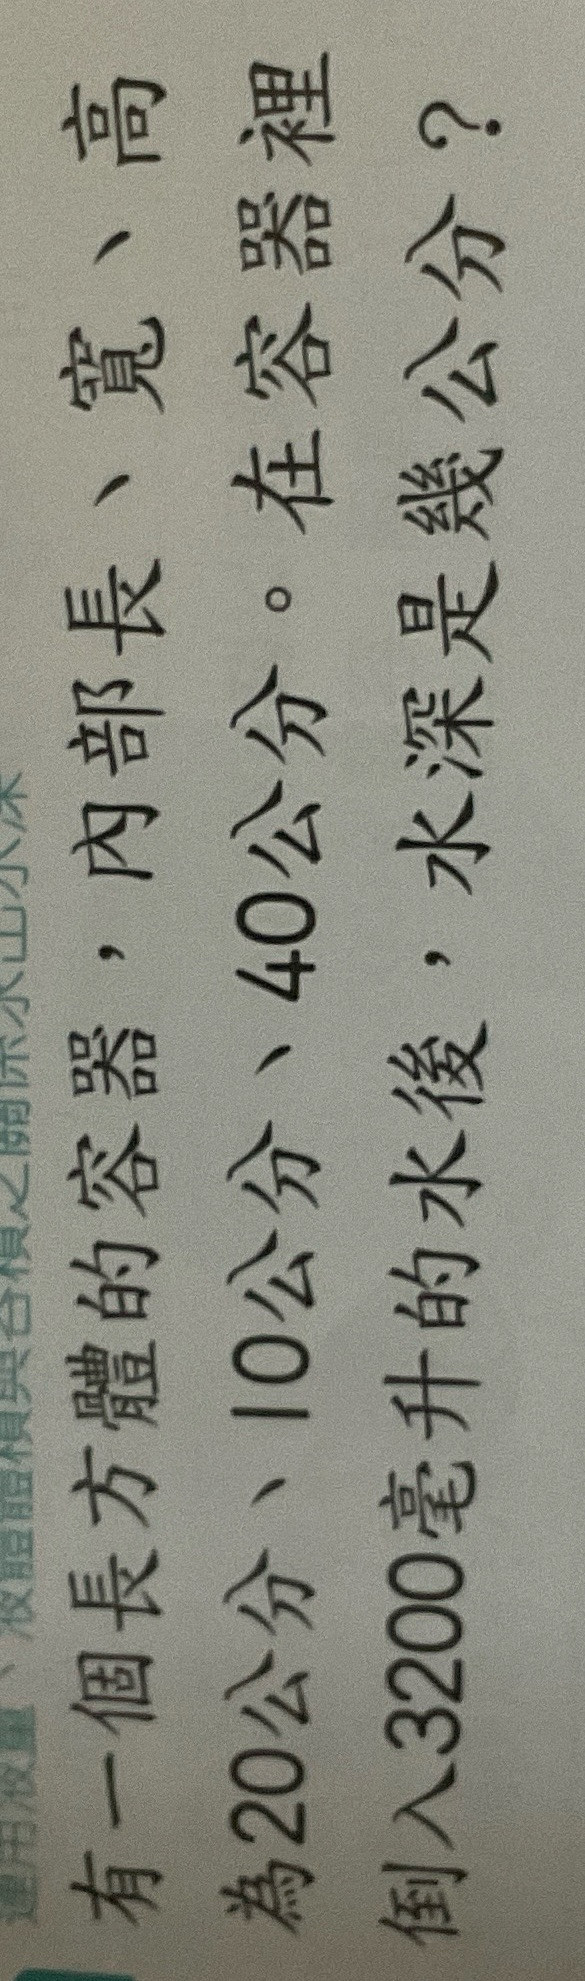 運用液量、液體體積與容積之關係求出水深
有一個長方體的容器，內部長、寬、高
為20公分、10公分、40公分。在容器裡
倒入3200毫升的水後，水深是幾公分？